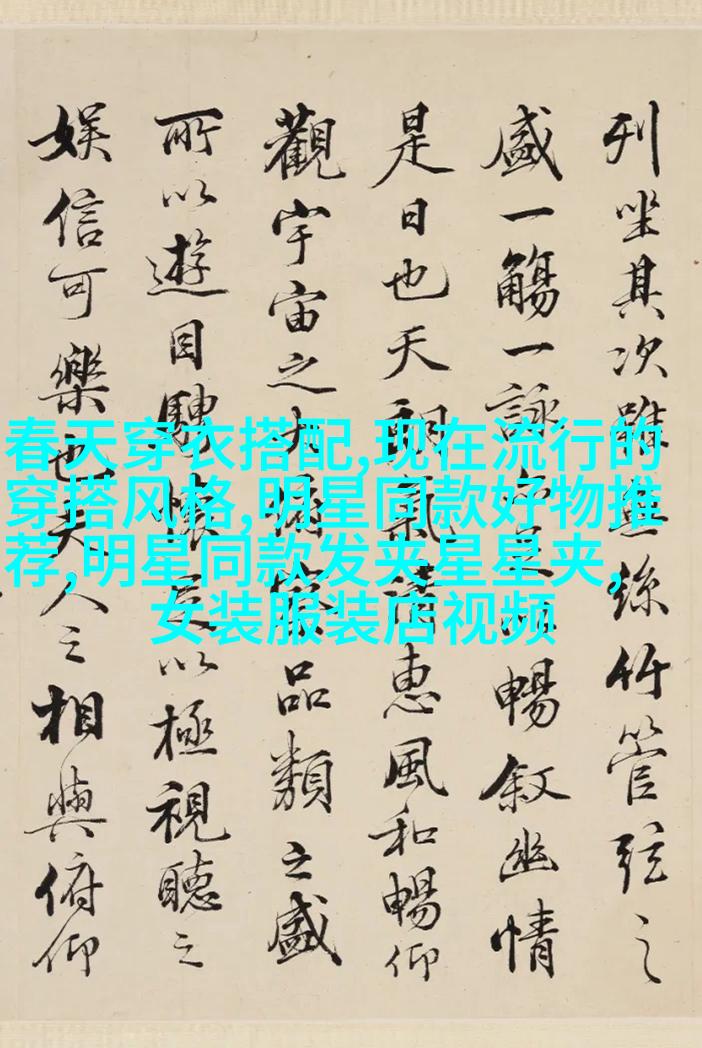 列坐其次雖無絲竹管弦之
盛一觴一詠亦足以暢叙幽情
是日也天朗氣清惠風和暢仰
觀宇宙之大俯察品類之盛
所以遊目騁懷足以極視聽之
娛信可樂也夫人之相與俯仰
春天穿衣搭配,现在流行的
穿搭风格,明星同款好物推
荐,明星同款发夹星星夹,
女装服装店视频